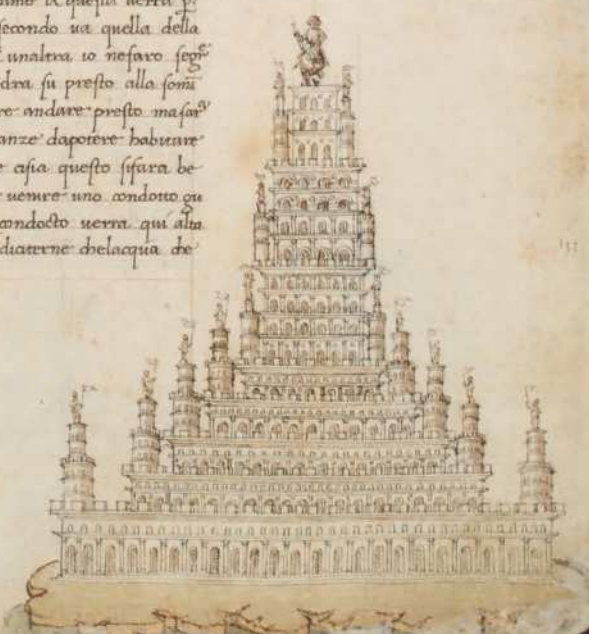 secondo ua quella della
unaltra io nefaro segͬͤ
dra su presto alla som
re andare presto ma sar
anze dapotere habitare
e asia questo sifara be
uenire uno condotto qu
condocto uerra qui alto
diciterne chelacqua che